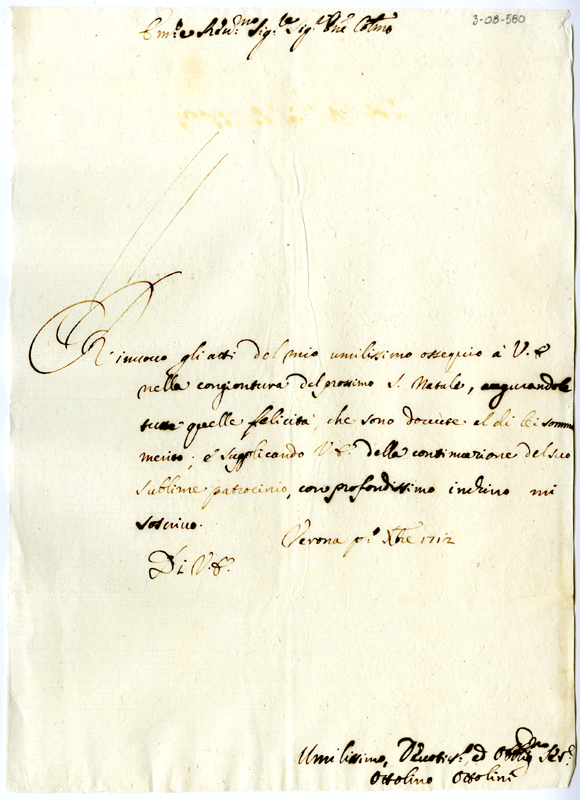 3-08-580
Em.e Rev.mo Sig.re Sig.re P.ne Col.mo
Rinuovo gli atti del mio umilissimo ossequio à V. E.
nella congiontura del prossimo S. Natale, augurandole
tutte quelle felicità, che sono dovute al di lei sommo
merito; è suplicando V. E. della continuazione del suo
sublime patrocinio, con profondissimo inchino mi
soscrivo.
Verona p.o Xbre 1712
Di V. E.
Umilissimo, Devotis.o, ed Obblig.mo Ser.e
Ottolino Ottolini